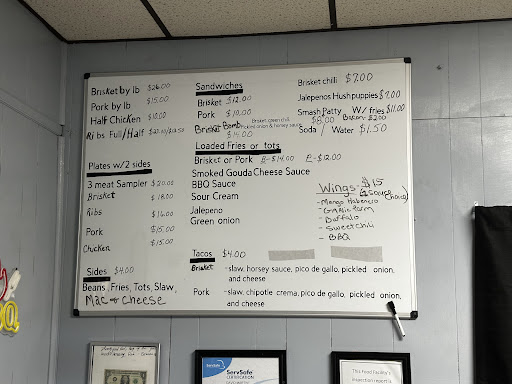 Brisket by lb $26.00
Pork by lb $15.00
Half Chicken $10.00
Ribs Full/Half
Plates w/2 sides
3 meat Sampler $20.00
Brisket $18.00
Ribs $16.00
Pork $15.00
Chicken $15.00
Sides $4.00
Beans, Fries, Tots, Slaw,
Mac + Cheese
Sandwiches
Brisket $12.00
Pork $10.00
Brisket Bomb
Brisket, queen chili
pickled onion & horsey sauce
$15.00
Loaded Fries or tots
Brisket or Pork B-$14.00 P-$12.00
Smoked Gouda Cheese Sauce
BBQ Sauce
Sour Cream
Jalapeno
Green onion
Tacos $4.00
Brisket -slaw, horsey sauce, pico de gallo, pickled onion,
and cheese
Pork -slaw, chipotle crema, pico de gallo, pickled onion,
and cheese
Brisket chili $7.00
Jalepenos Hushpuppies $7.00
Smash Patty W/ fries $11.00
$8.00 Bacon $2.00
Soda / Water $1.50
Wings-$15
(Sauce Choice)
-Mango Habenero
-Garlic Parm
-Buffalo
-Sweet chili
-BBQ
ServSafe
ServSafe
CERTIFICATION
This Food Facility's
Inspection report is